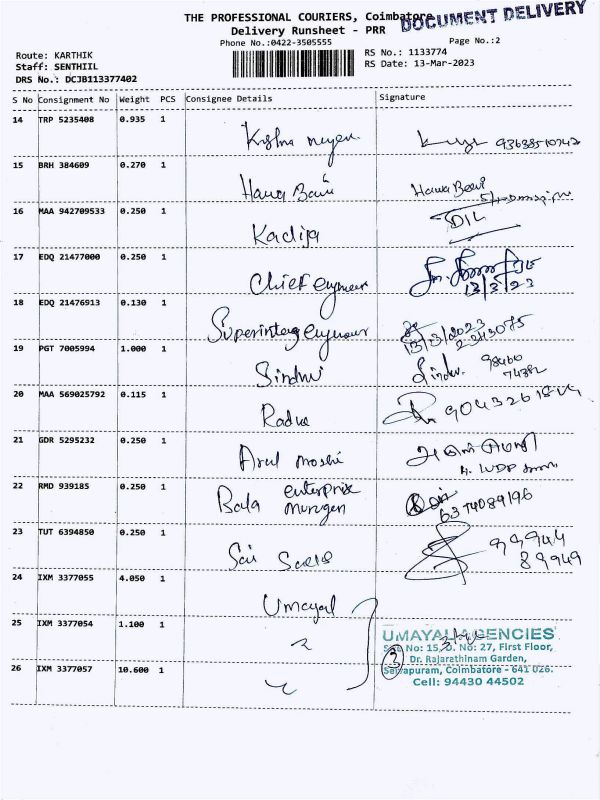 THE PROFESSIONAL COURIERS, Coimbatore
DOCUMENT DELIVERY
Delivery Runsheet - PRR
Phone No.:0422-3505555
Page No.:2
Route: KARTHIK
RS No.: 1133774
Staff: SENTHIIL
RS Date: 13-Mar-2023
DRS No.: DCJB113377402
S No Consignment No Weight PCS Consignee Details Signature
14 TRP 5235408 0.935 1
15 BRH 384609 0.270 1
Hawa Beevi
16 MAA 942709533 0.250 1
Kadija
DIL
17 EDQ 21477000 0.250 1
Chief engineer
13/3/23
18 EDQ 21476913 0.130 1
13/3/2023
19 PGT 7005994 1.000 1
Sindhu
Sindhu
20 MAA 569025792 0.115 1
21 GDR 5295232 0.250 1
Arul moshi
22 RMD 939185 0.250 1
Bala enterprise
murugan
6374089196
23 TUT 6394850 0.250 1
Sai Sales
99944
89949
24 IXM 3377055 4.050 1
Umayal
25 IXM 3377054 1.100 1
UMAYAL AGENCIES
No: 15, O. No: 27, First Floor,
Dr. Rajarathinam Garden,
26 IXM 3377057 10.600 1
3
Selvapuram, Coimbatore - 641 026.
Cell: 94430 44502